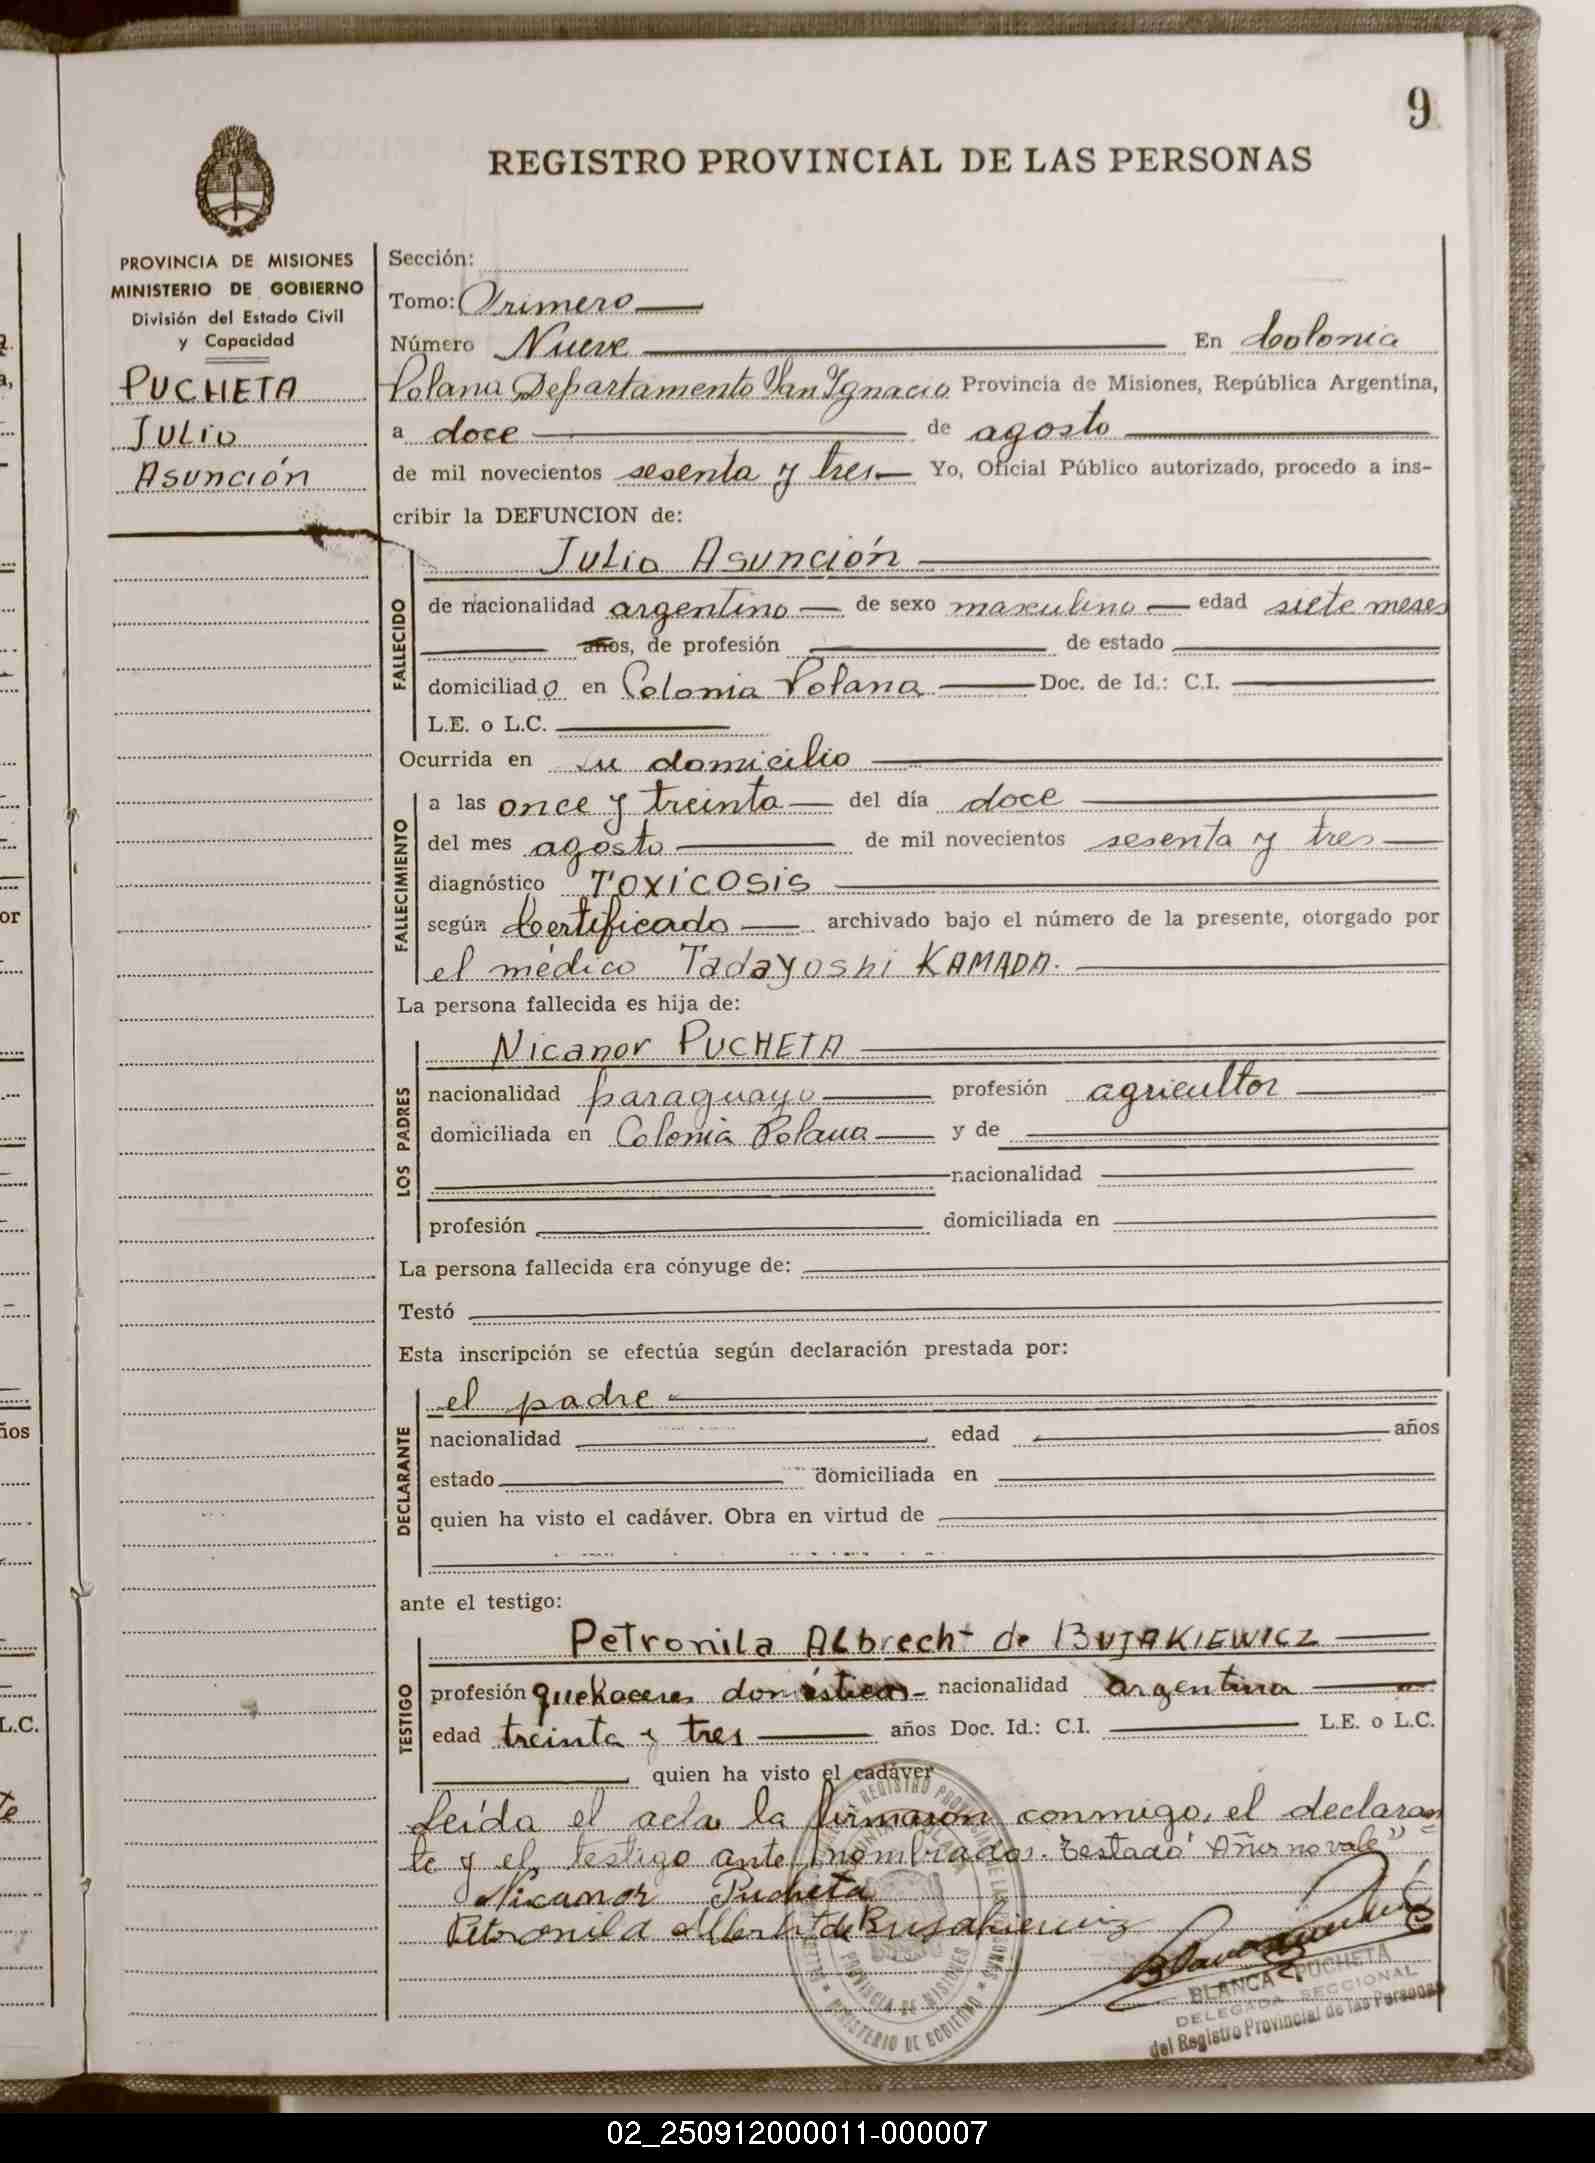 9
REGISTRO PROVINCIAL DE LAS PERSONAS
PROVINCIA DE MISIONES
MINISTERIO DE GOBIERNO
División del Estado Civil
y Capacidad
PUCHETA
Julio
Asunción
Sección:
Tomo: Primero
Número Nueve En Colonia
Polana Departamento San Ignacio Provincia de Misiones, República Argentina,
a doce de agosto
de mil novecientos sesenta y tres Yo, Oficial Público autorizado, procedo a ins-
cribir la DEFUNCION de:
FALLECIDO
Julio Asunción
de nacionalidad argentino de sexo masculino edad siete meses
años, de profesión de estado
domiciliado en Colonia Polana Doc. de Id.: C.I.
L.E. o L.C.
Ocurrida en su domicilio
FALLECIMIENTO
a las once y treinta del día doce
del mes agosto de mil novecientos sesenta y tres
diagnóstico Toxicosis
según Certificado archivado bajo el número de la presente, otorgado por
el médico Tadayoshi KAMADA.
La persona fallecida es hija de:
LOS PADRES
Nicanor PUCHETA
nacionalidad paraguayo profesión agricultor
domiciliada en Colonia Polana y de
nacionalidad
profesión domiciliada en
La persona fallecida era cónyuge de:
Testó
Esta inscripción se efectúa según declaración prestada por:
DECLARANTE
el padre
nacionalidad edad años
estado domiciliada en
quien ha visto el cadáver. Obra en virtud de
ante el testigo:
TESTIGO
Petronila Albrecht de BUJAKIEWICZ
profesión quehaceres domésticos nacionalidad argentina
edad treinta y tres años Doc. Id.: C.I. L.E. o L.C.
quien ha visto el cadáver
Leída el acta la firmaron conmigo, el declaran
te y el testigo ante nombrados. Testado "Años no vale"
Nicanor Pucheta
Petronila de
BLANCA PUCHETA
DELEGADA SECCIONAL
del Registro Provincial de las Personas
PROVINCIA DE MISIONES
MINISTERIO DE GOBIERNO
02_250912000011-000007